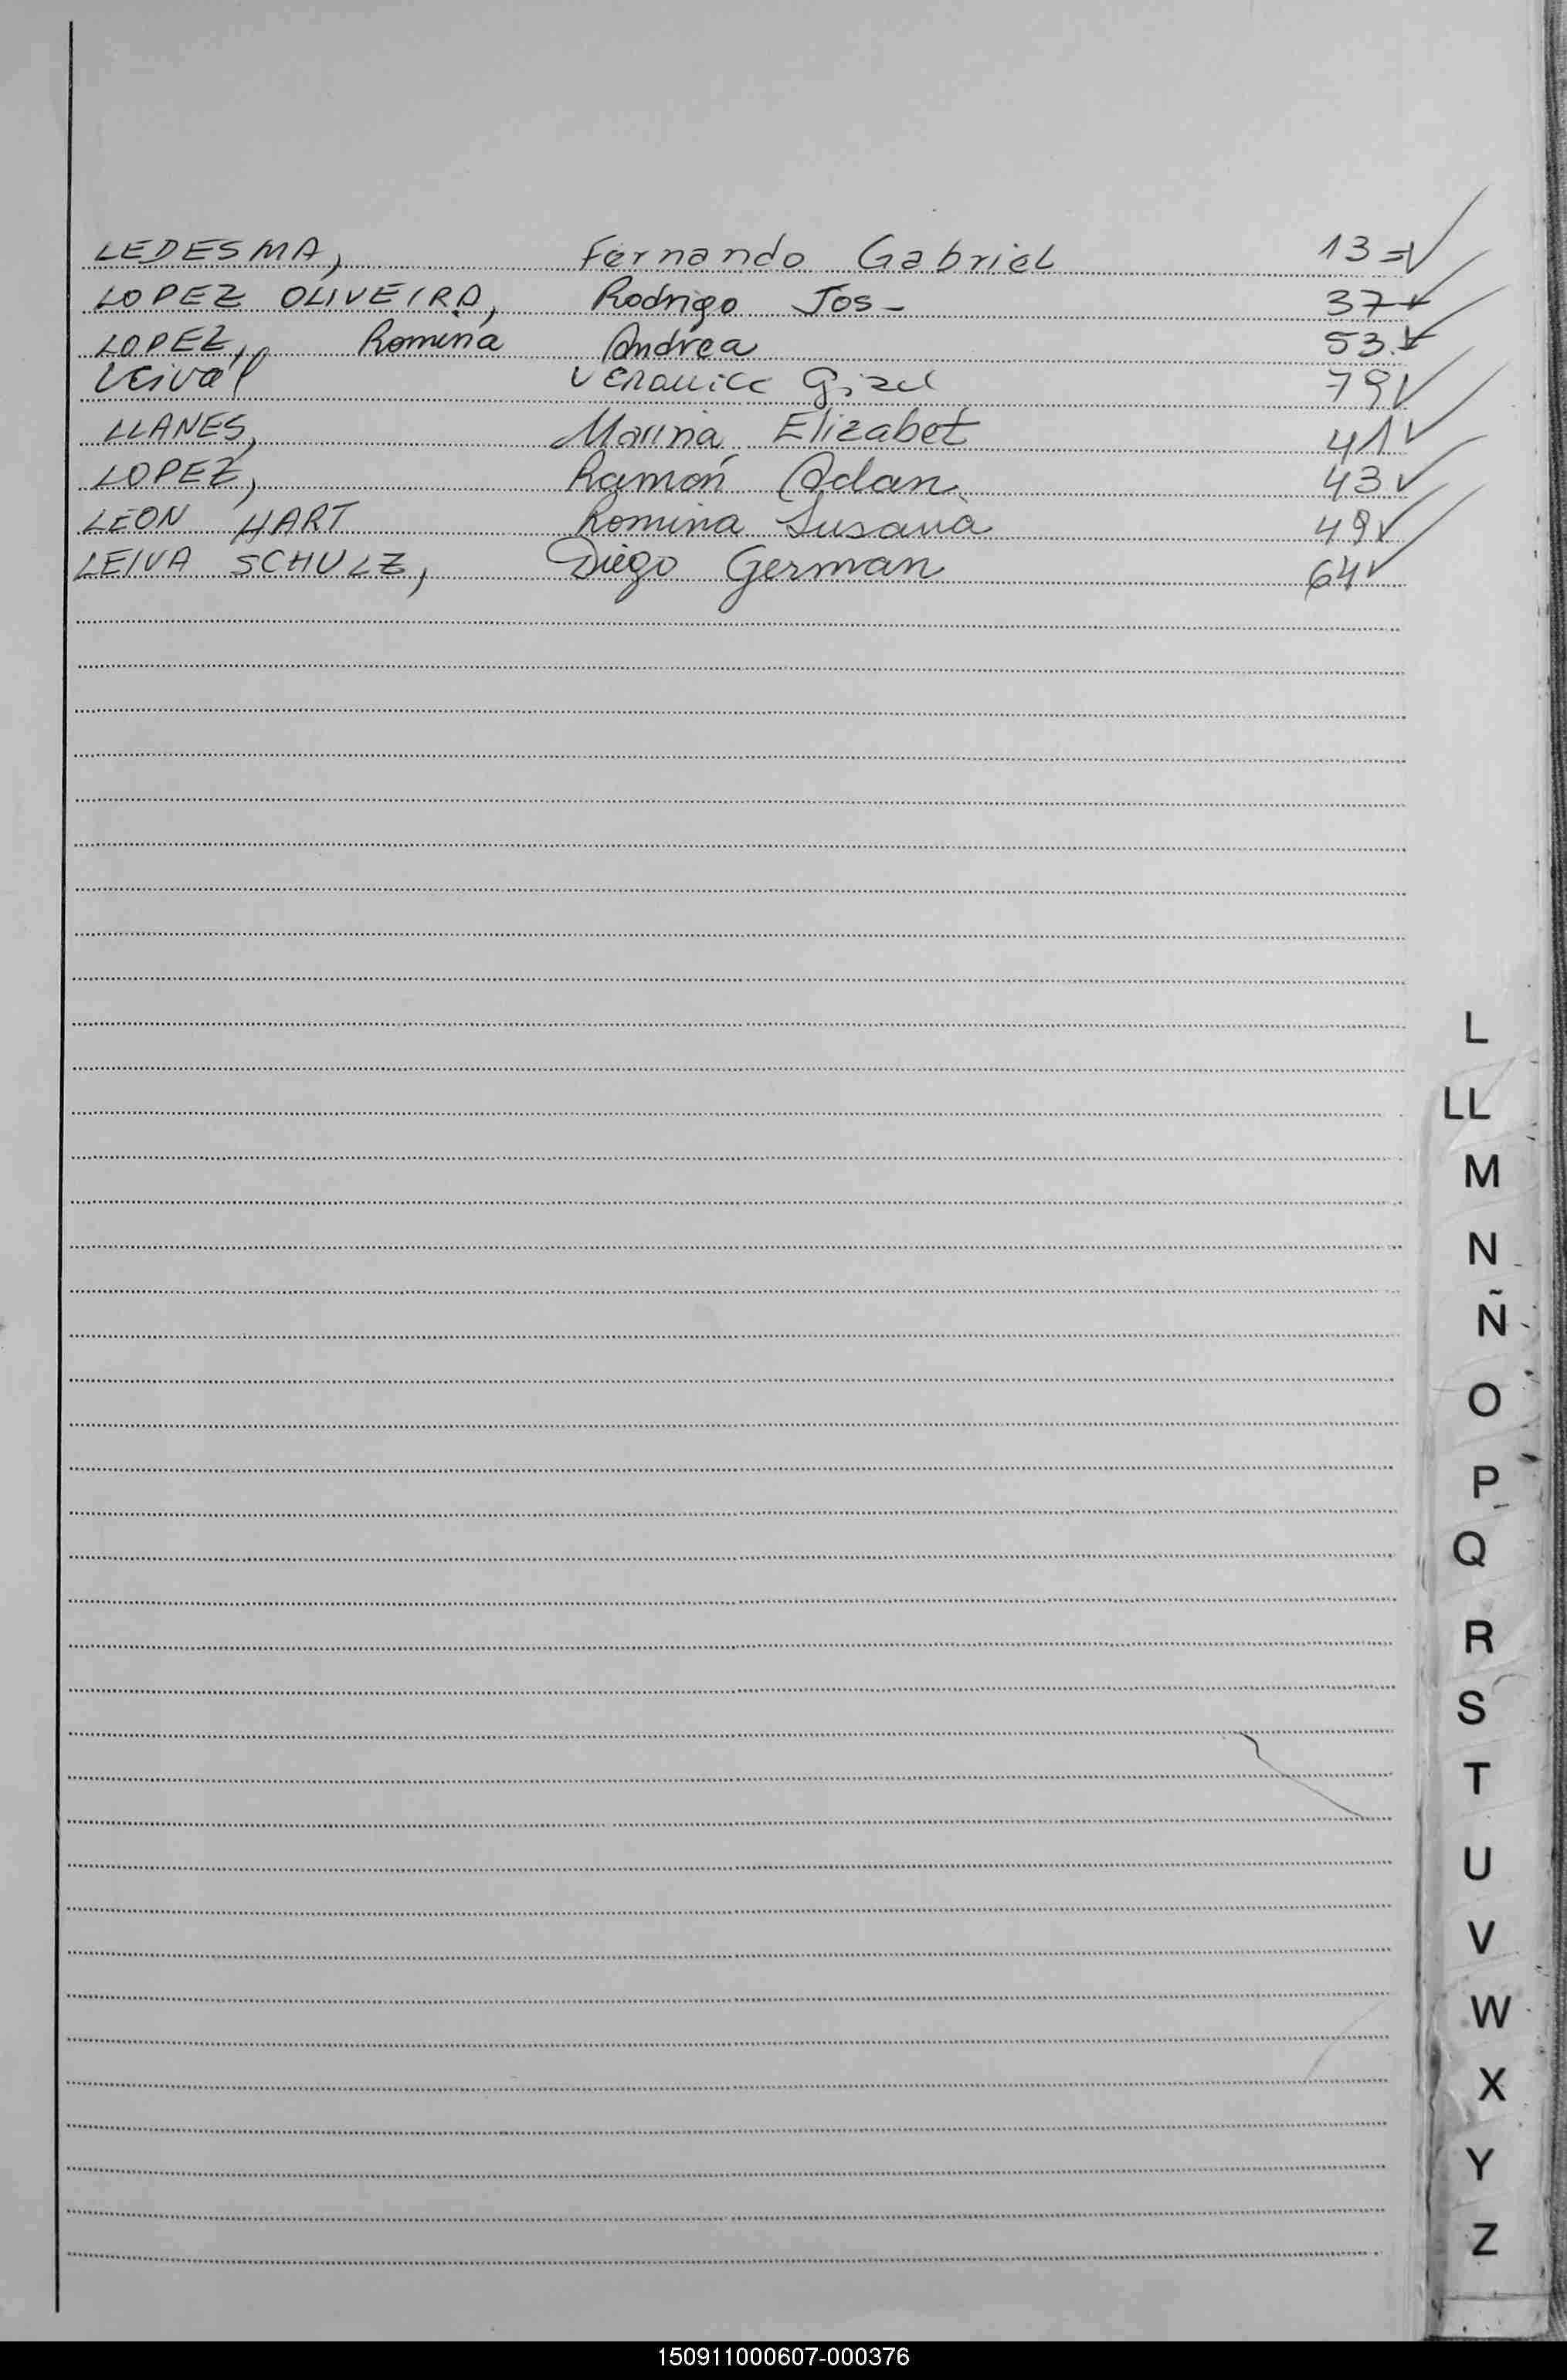 LEDESMA, Fernando Gabriel 13=✓
LOPEZ OLIVEIRA, Rodrigo Jos- 37✓
LOPEZ, Romina Andrea 53✓
Leiva Veronica Gizel 79✓
LLANES, Marina Elizabet 41✓
LOPEZ, Ramón Adan 43✓
LEON HART Romina Susana 49✓
LEIVA SCHULZ, Diego German 64✓
L
LL
M
N
Ñ
O
P
Q
R
S
T
U
V
W
X
Y
Z
150911000607-000376